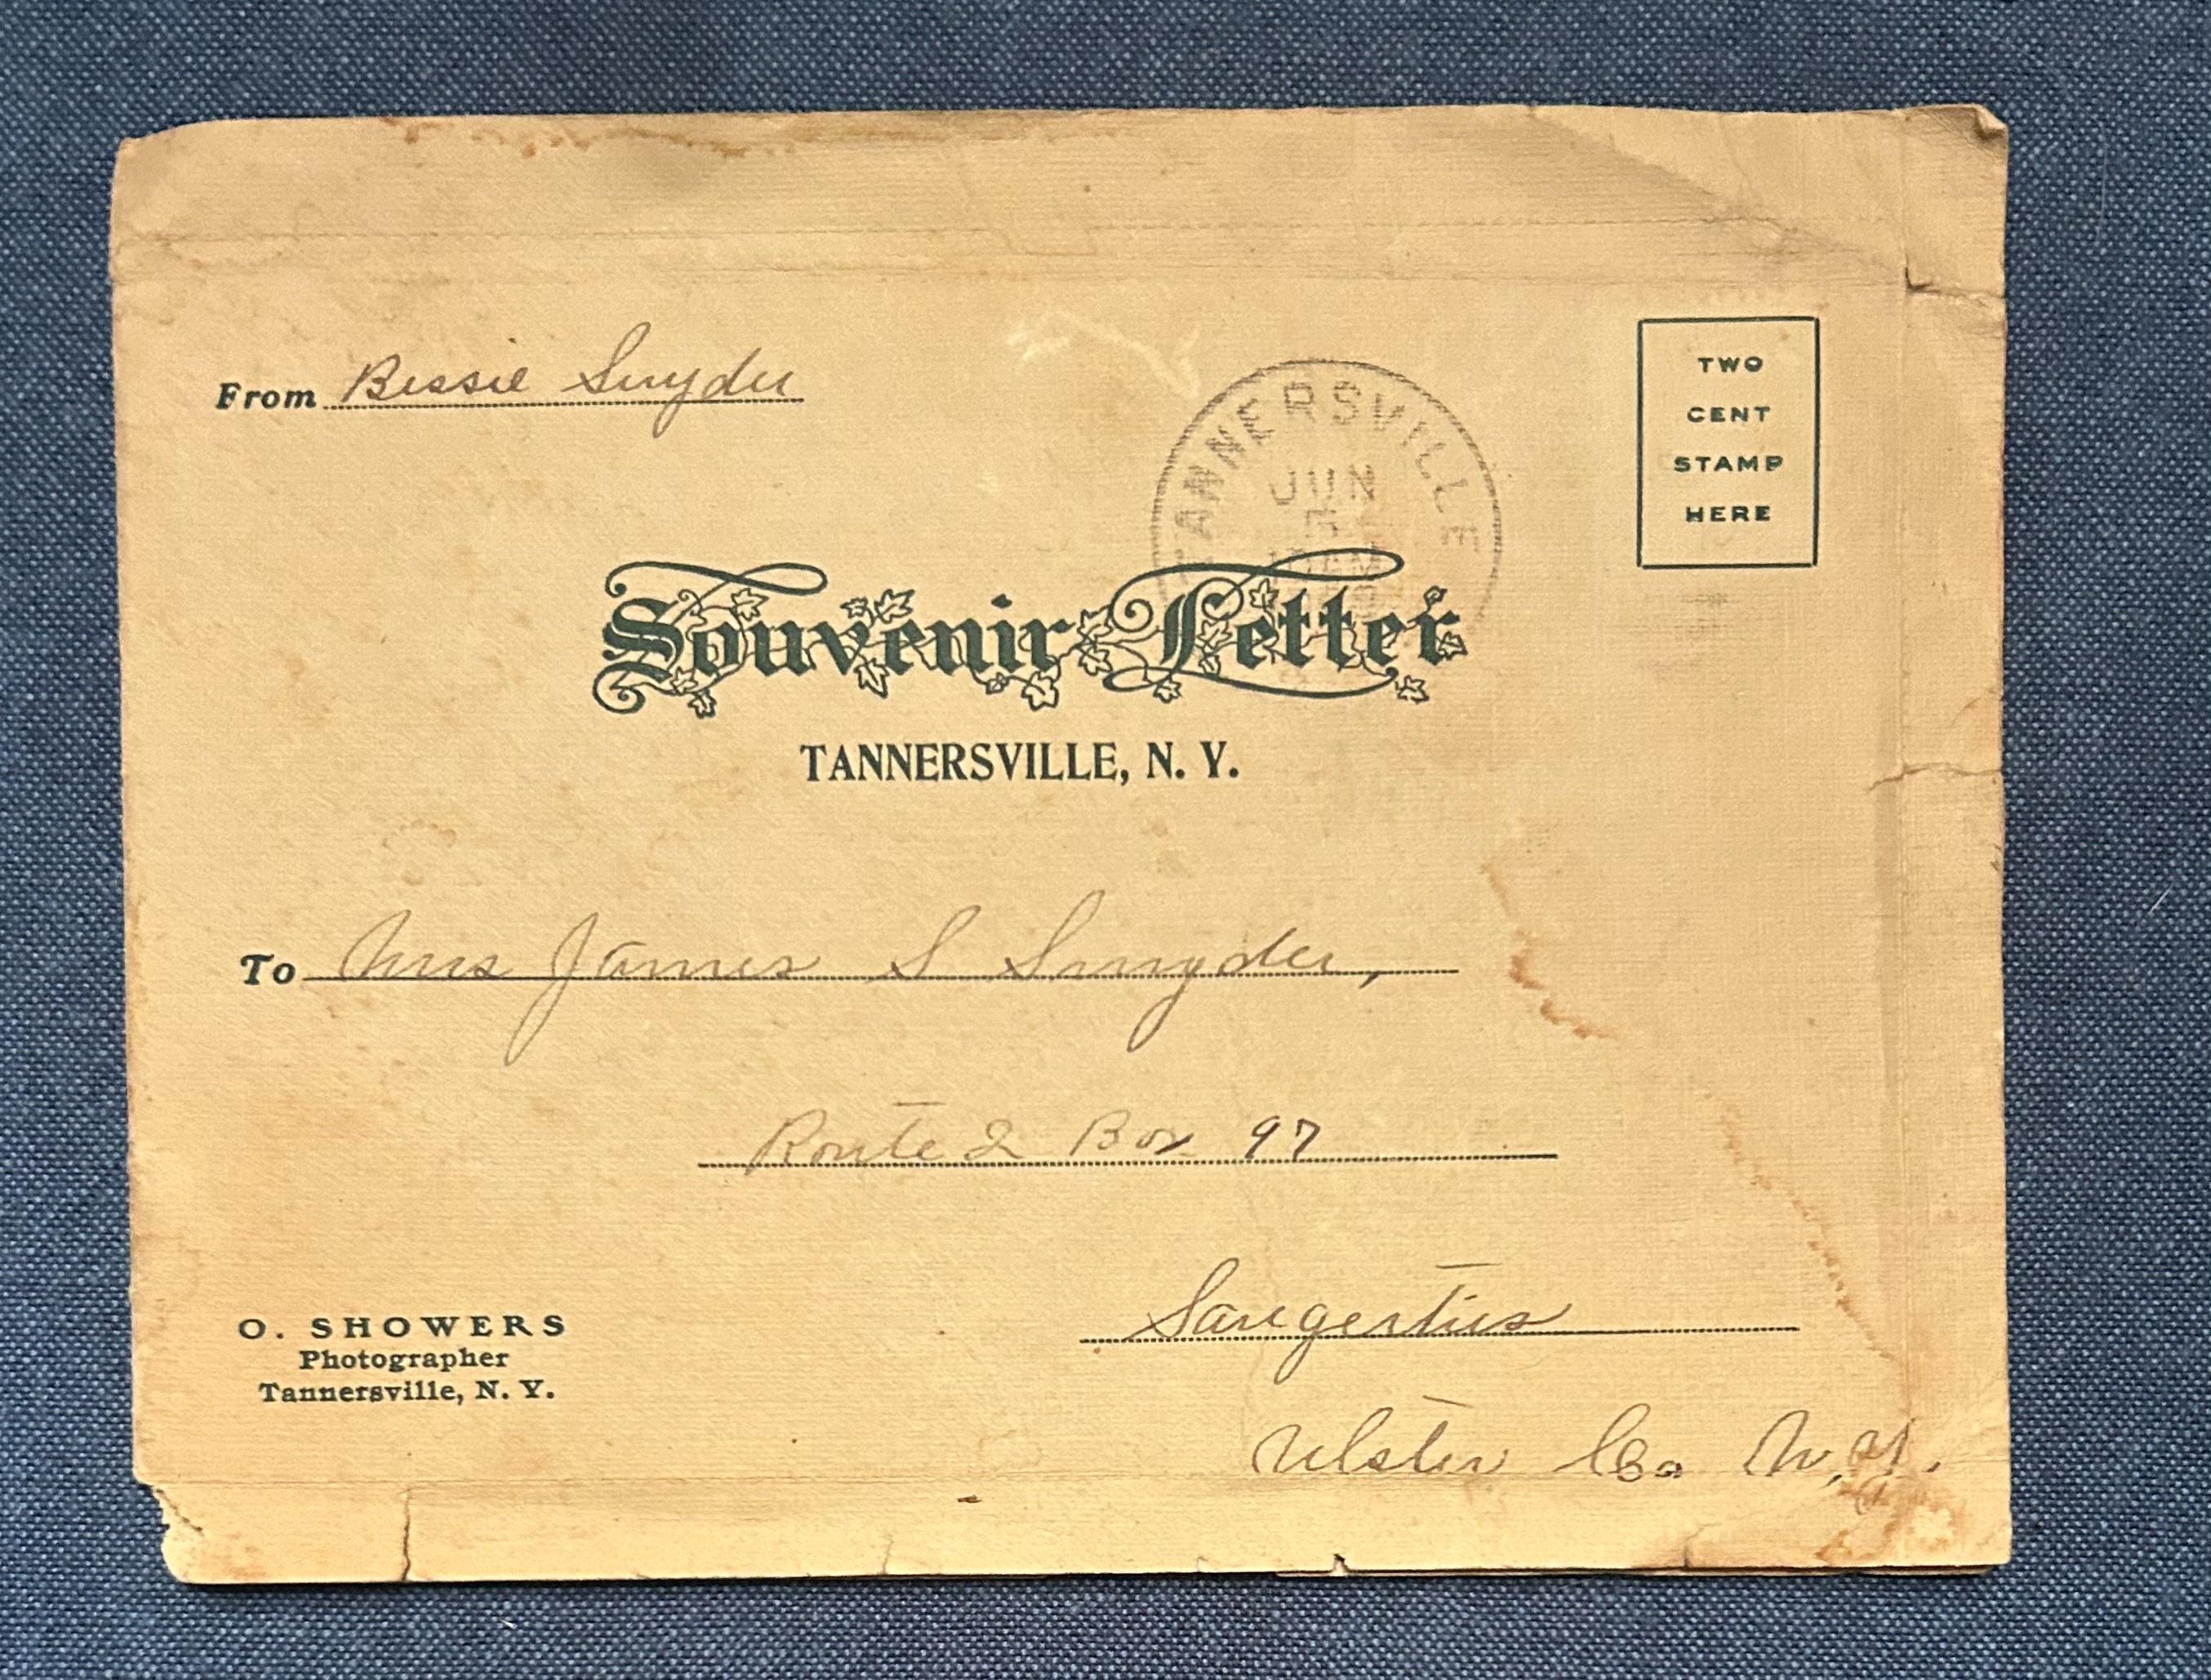 From Bessie Snyder
TWO
CENT
STAMP
HERE
TANNERSVILLE
JUN
AM
Souvenir Letter
TANNERSVILLE, N. Y.
To Mrs James S Snyder,
Route 2 Box 97
Saugerties
Ulster Co. N.Y.
O. SHOWERS
Photographer
Tannersville, N. Y.